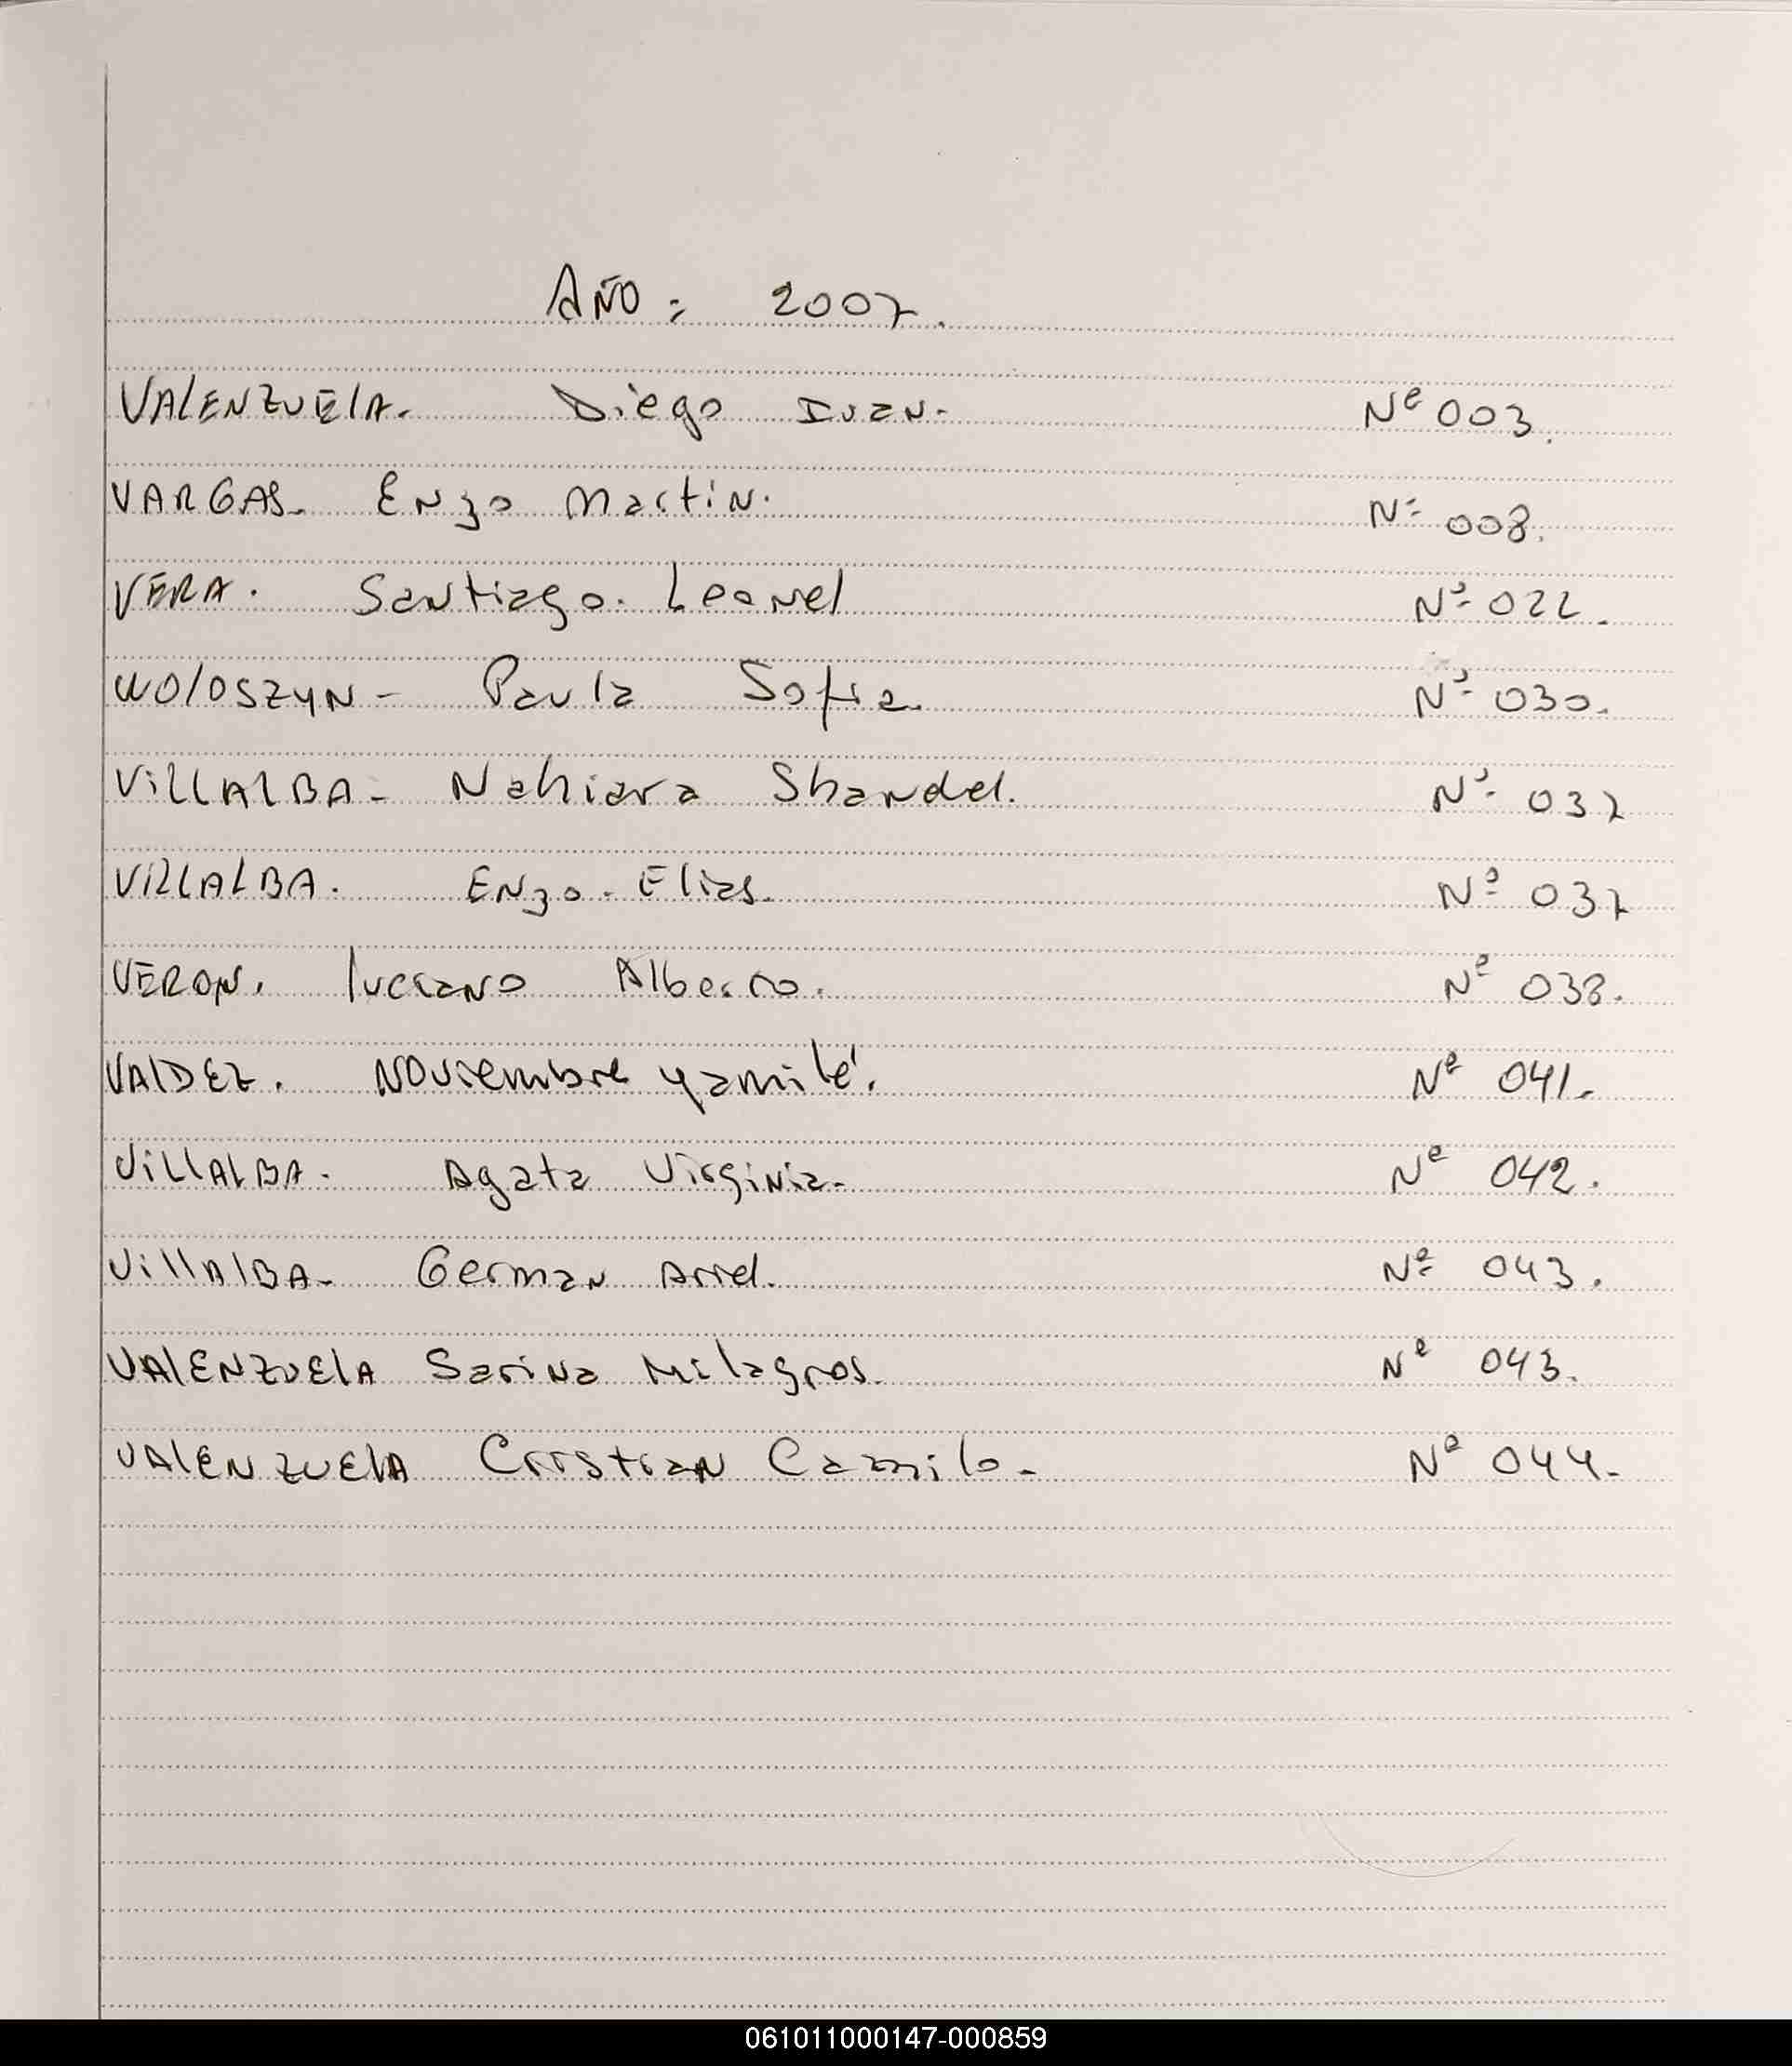 AÑO: 2007.
VALENZUELA. Diego Ivan. Nº 003.
VARGAS. Enzo Martin. Nº 008.
VERA. Santiago. Leonel Nº 022.
WOLOSZYN - Paula Sofia. Nº 030.
VILLALBA - Nahiara Shandel. Nº 037
VILLALBA. Enzo. Elias. Nº 037
VERON. Luciano Alberto. Nº 038.
VALDEZ. Noviembre Yamilé. Nº 041.
VILLALBA. Agata Virginia. Nº 042.
VILLALBA - German Ariel. Nº 043.
VALENZUELA Sarina Milagros. Nº 043.
VALENZUELA Cristian Camilo. Nº 044.
061011000147-000859